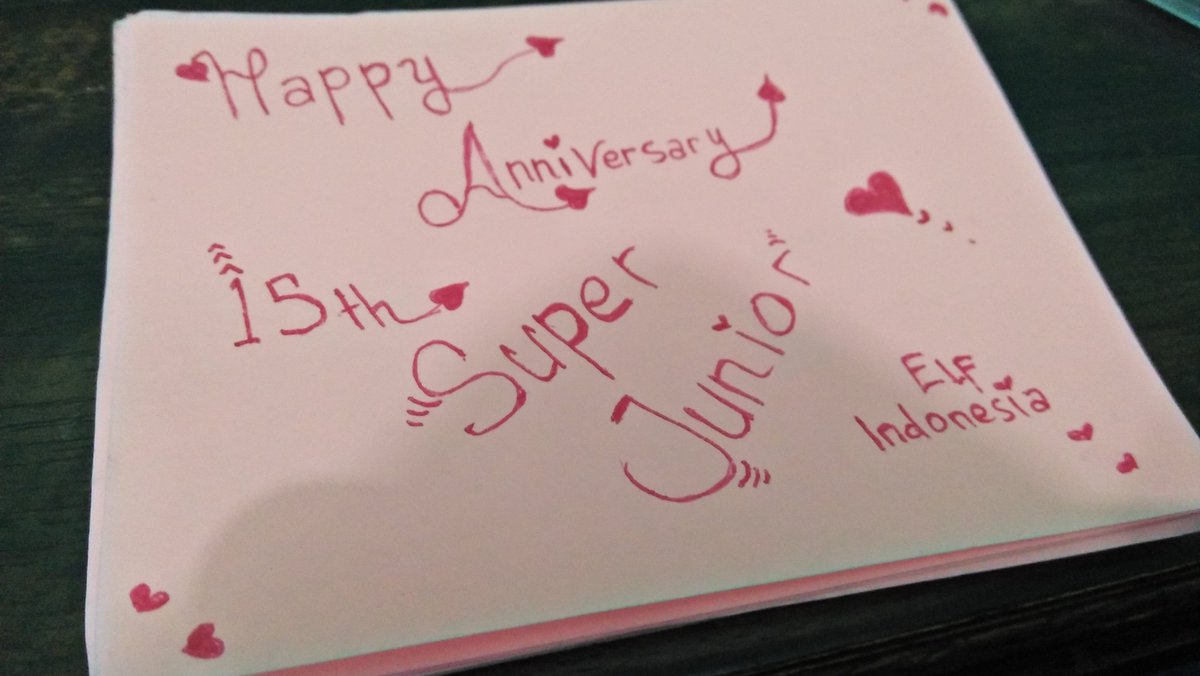 Happy
Anniversary
15th
Super
Junior
ELF
Indonesia